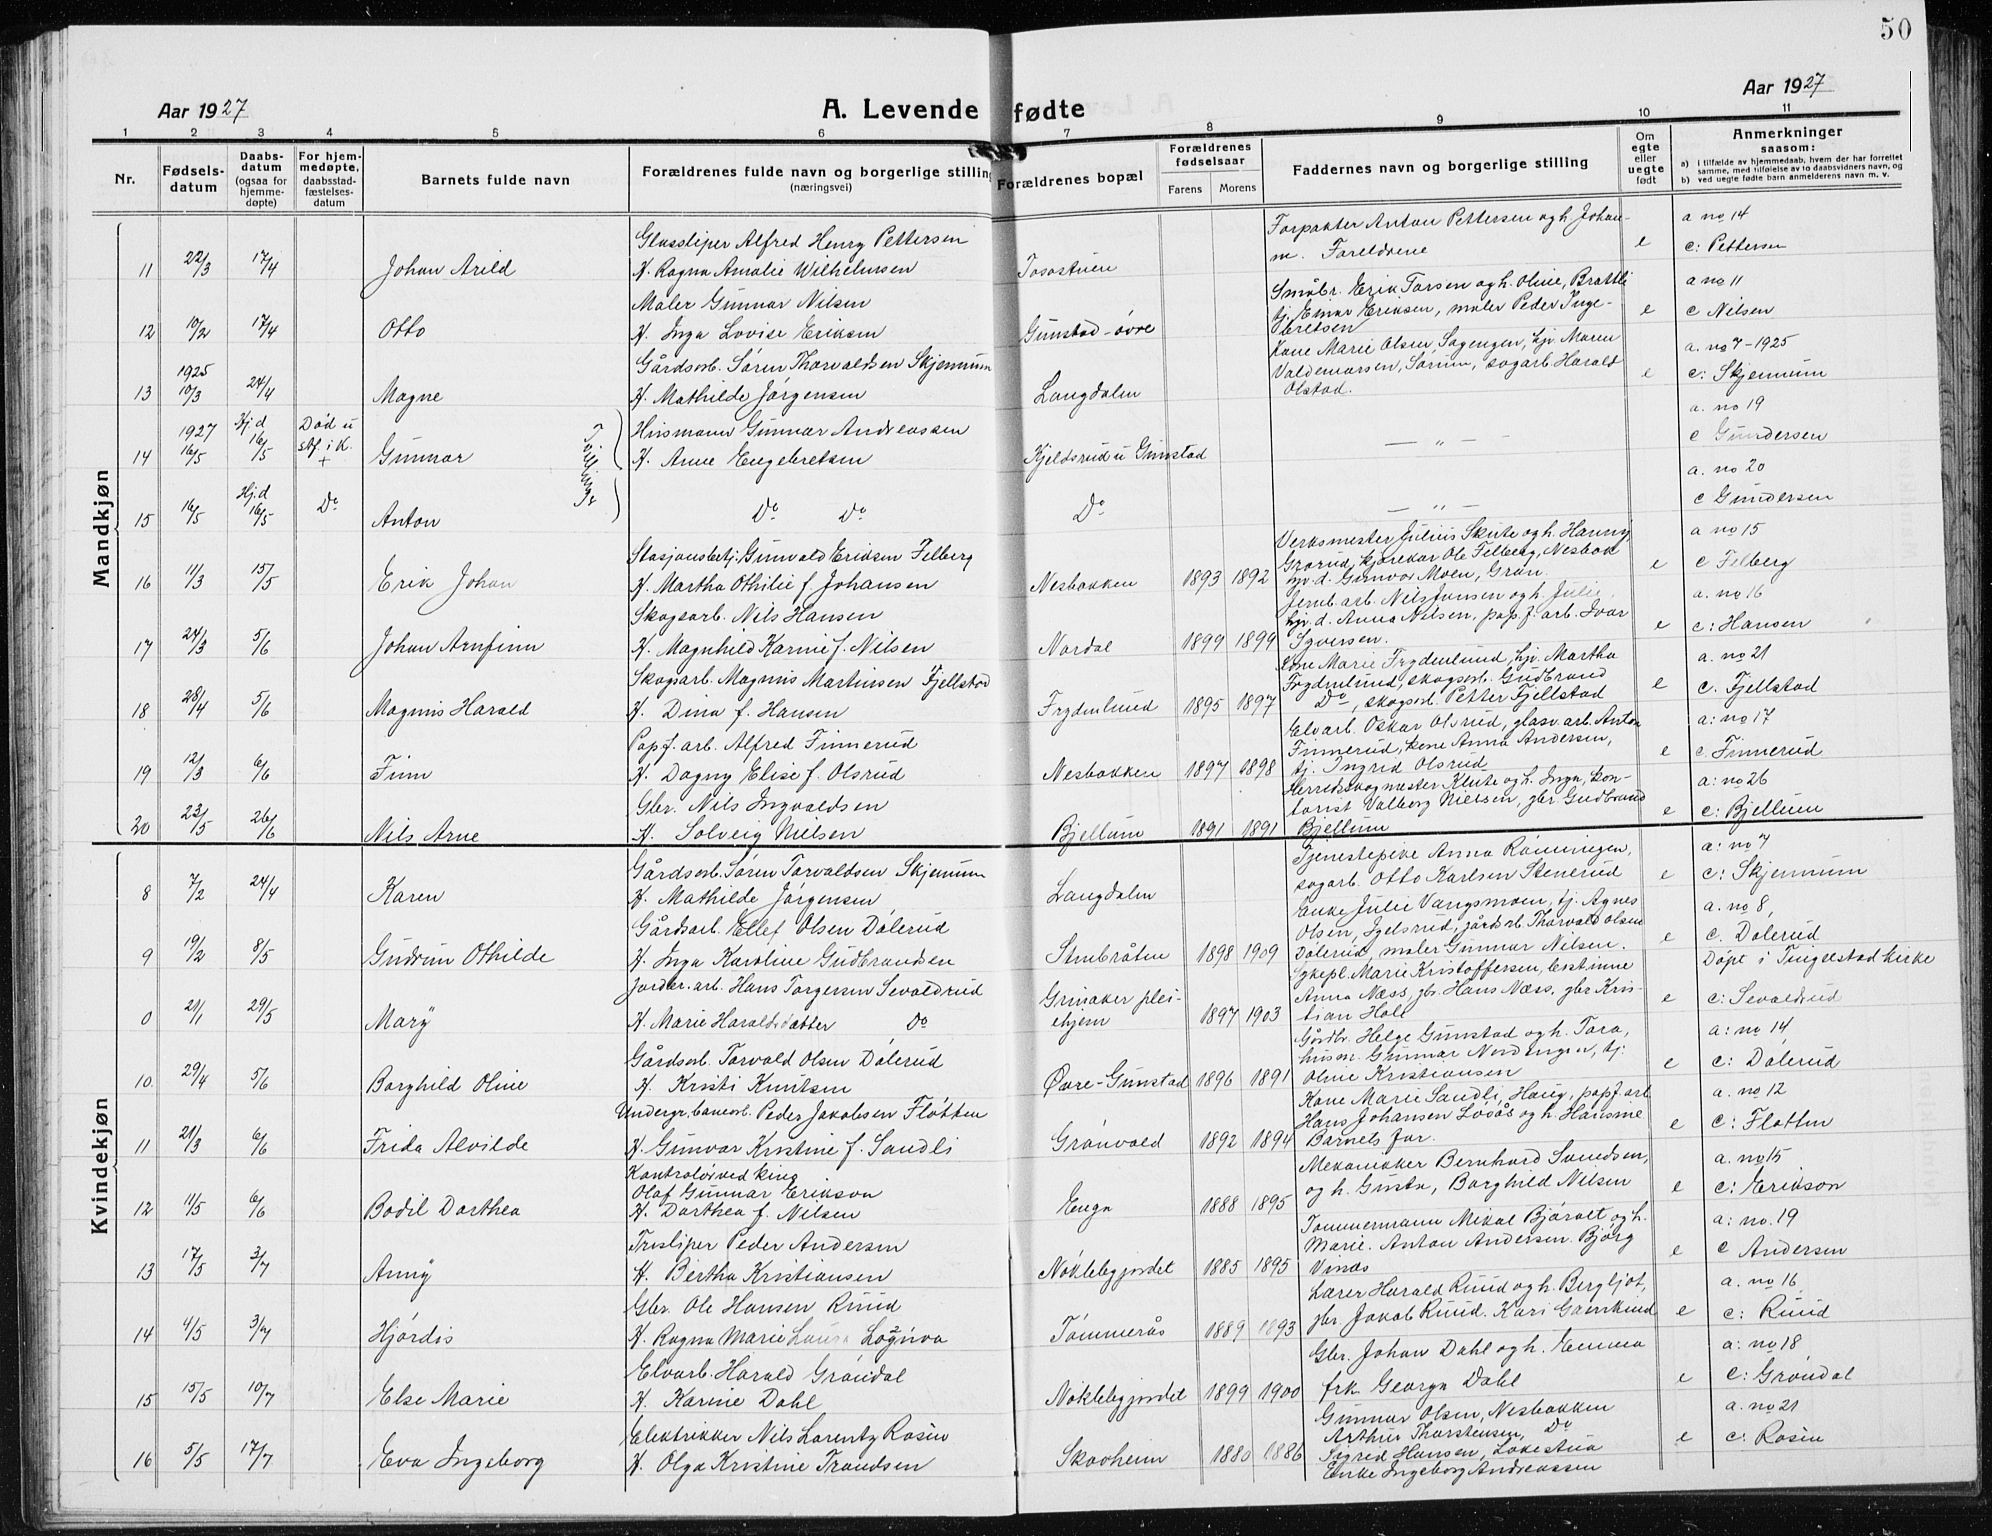 50
Aar 1927
A. Levende fødte
Aar 1927
1 2 3 4 5 6 7 8 9 10 11
Nr.
Fødsels-
datum
Daabs-
datum
(ogsaa for
hjemme-
døpte)
For hjem-
medøpte,
daabsstad-
fæstelses-
datum
Barnets fulde navn
Forældrenes fulde navn og borgerlige stilling
(næringsvei)
Forældrenes bopæl
Forældrenes
fødselsaar
Farens Morens
Faddernes navn og borgerlige stilling
Om
egte
eller
uegte
født
Anmerkninger
saasom:
a) i tilfælde av hjemmedaab, hvem der har forrettet
samme, med tilføielse av to daabsvidners navn, og
b) ved uegte fødte barn anmelderens navn m. v.
Mandkjøn
Glassliper Alfred Henry Pettersen Forpakter Anton Pettersen og h. Johan- a no 14
11 22/3 17/4 Johan Arild H. Ragna Amalie Wilhelmsen Tosostuen m. Foreldrene e c: Pettersen
Maler Gunnar Nilsen Småbr. Erik Torsen og h. Oline, Brattli a no 11
12 10/2 17/4 Otto H. Inga Lovise Eriksen Gunstad-övre tj. Einar Eriksen, maler Peder Inge-
bretsen e c Nilsen
1925 Gårdsarb. Sören Thorvaldsen Skjennum Kone Marie Olsen Sagengen, hj. Maren a. no 7-1925
13 10/3 24/4 Magne H. Mathilde Jörgensen Langdalen Valdemarsen, Sörum, sagarb. Harald
Olstad. e c: Skjennum
1927 Hj.d Död u Husmann Gunnar Andreassen a. no 19
14 16/5 16/5 stf. i K. + Gunnar Tvillinger H. Anne Engebretsen Kjeldsrud u Gunstad — " — c Gundersen
a. no 20
15 16/5 Hj.d 16/5 Do Anton Do Do Do — " — c Gundersen
Stasjonsbetj. Gunvald Eriksen Felberg Verksmester Julius Skute og h. Hanny a no 15
16 11/3 15/5 Erik Johan H. Martha Othilie f. Johansen Nesbakken 1893 1892 Grorud, kjörekar Ole Felberg, Nesbak
hj. d. Gunvor Moen, Gran. e c Felberg
Skogsarb. Nils Hansen Jernb arb. Nils Jonsen og h. Julie, a. no 16
17 24/3 5/6 Johan Arnfinn H. Magnhild Karine f. Nilsen Nordal 1899 1899 hj. d. Anna Nilsen, papf. arb. Ivar
Syversen. e c: Hansen
Skogsarb. Magnus Martinsen Fjellstad Kone Marie Frydenlund, hj. Martha a. no 21
18 28/4 5/6 Magnus Harald H. Dina f. Hansen Frydenlund 1895 1897 Frydenlund, skogsarb. Gudbrand
Do, skogsarb. Petter Fjellstad e c. Fjellstad
Papf. arb. Alfred Finnerud Elvarb. Oskar Olsrud, glasv. arb. Anton a: no 17
19 12/3 6/6 Finn H. Dagny Elise f. Olsrud Nesbakken 1897 1898 Finnerud, kone Anna Andersen,
tj. Ingrid Olsrud e c. Finnerud
Gbr. Nils Ingvaldsen Herredsvagmester Klute og h. Inga, kon- a: no 26
20 23/5 26/6 Nils Arne H. Solveig Nielsen Bjellum 1891 1891 torist Valborg Nielsen, gbr Gudbrand
Bjellum e c: Bjellum
Kvindekjøn
Gårdsarb. Sören Torvaldsen Skjennum Tjenestepike Anna Rönningen, a: no 7
8 7/2 24/4 Karen H. Mathilde Jörgensen Langdalen sagarb. Otto Karlsen Stenerud e c: Skjennum
Gårdsarb. Ellef Olsen Dölerud Enke Julie Vangsmoen, tj. Agnes a. no 8,
9 19/2 8/5 Gudrun Othilde H. Inga Karoline Gudbrandsen Stenbråten 1898 1909 Olsen, Egelsrud, gårdsarb. Thorvald Olsen
Dölerud, maler Gunnar Nilsen. e c. Dölerud
Jordbr. arb. Hans Torgersen Sevaldrud Sykepl. Marie Kristoffersen, bestinne Döpt i Tingelstad kirke
0 21/1 29/5 Mary H. Marie Haraldsdatter Do Grinaker plei-
ehjem 1897 1903 Anna Næss, gbr. Hans Næss, gbr Kris-
tian Holl e c: Sevaldrud
Gårdsarb. Torvald Olsen Dölerud Gårdbr. Helge Gunstad og h. Tora, a: no 14
10. 29/4 5/6 Borghild Oline H. Kristi Knutsen Övre-Gunstad 1896 1891 husm. Gunnar Nordengen, tj.
Oline Kristiansen e c: Dölerud
Undergr. banearb. Peder Jakobsen Flötten Kone Marie Sandli, Haug, papf. arb a. no 12
11 21/3 6/6 Frida Alvilde H. Gunvor Kristine f. Sandli Grönvold 1892 1894 Hans Johansen Looås og h. Hansine
Barnets far. e c: Flotten
Kontrolör ved king
Olaf Gunnar Erikson Mekanikker Bernhard Svendsen, a. no 15
12 11/5 6/6 Bodil Dorthea H. Dorthea f. Nilsen Enga 1888 1895 og h. Gusta, Borghild Nilsen e c: Erikson
Tresliper Peder Andersen Tömmermann Mikal Björalt og h. a: no. 19
13 17/5 3/7 Anny H. Bertha Kristiansen Nöklebygjordet 1885 1895 Marie. Anton Andersen. Björg
Vinæs e c Andersen
Gbr. Ole Hansen Ruud Lærer Harald Ruud og h. Bergljot, a. no 16
14 4/5 3/7 Hjördis H. Ragna Marie Tömmerås 1889 1893 gbr. Jakob Ruud. Kari Gamkind e c: Ruud
Elvarb. Harald Gröndal Gbr. Johan Dahl og h. Emma a: no 18
15 15/5 10/7 Else Marie H. Karine Dahl Nöklebygjordet 1899 1900 frk. Georga Dahl e c: Gröndal
Elektrikker Nils Lorentz Rosin Gunnar Olsen, Nesbakken a. no 21
16 5/5 17/7 Eva Ingeborg H. Olga Kristine Trondsen Skogheim 1880 1886 Arthur Thorstensen, Do
Sigrid Hansen, Lokestua
Enke Ingeborg Andreassen e c: Rosin